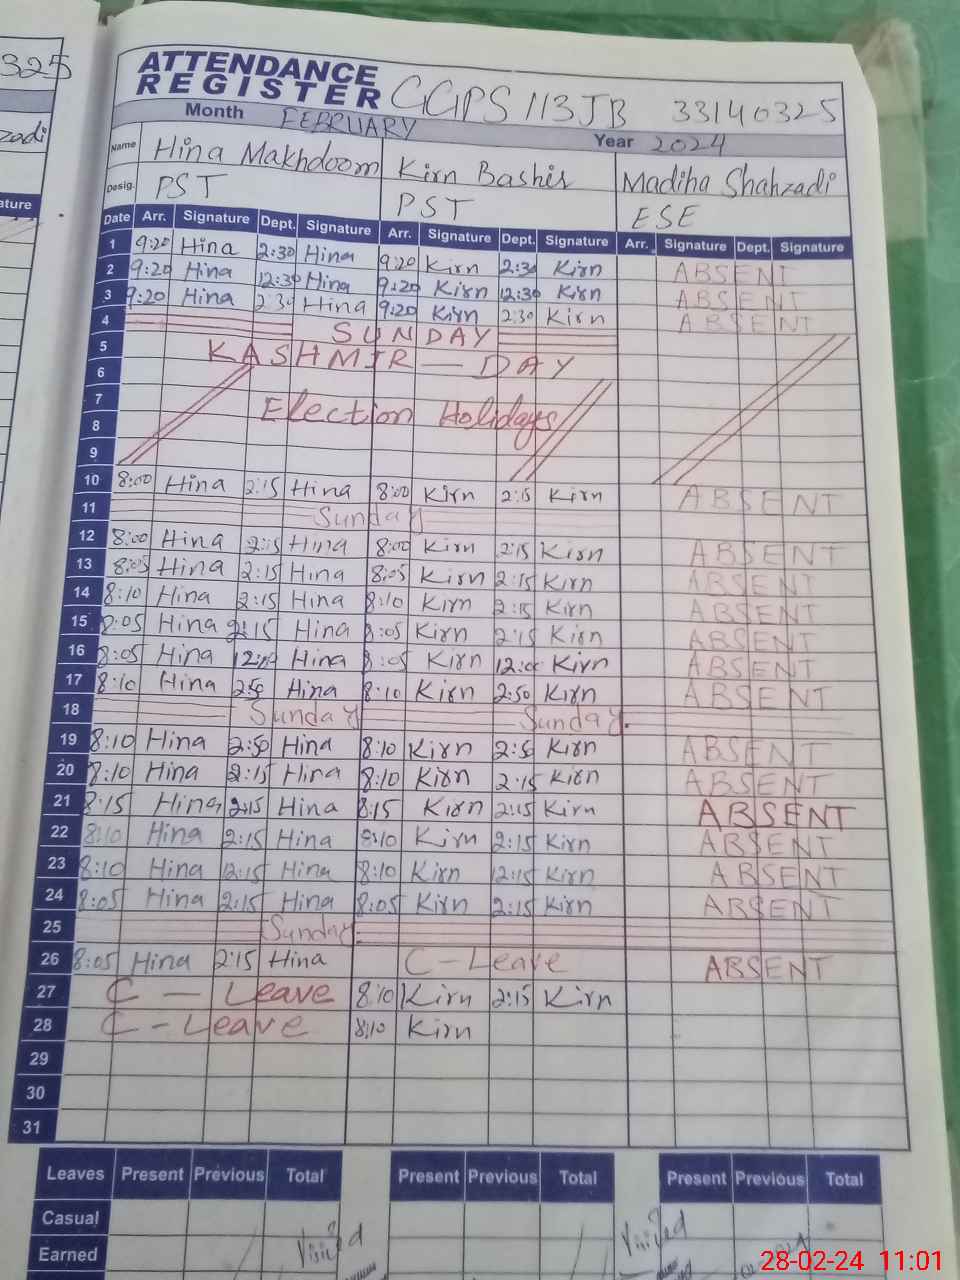 325
zadi
ature
ATTENDANCE
REGISTER CGPS 113JB 33140325
Month FEBRUARY Year 2024
Name Hina Makhdoom Kirn Bashir Madiha Shahzadi
Desig. PST PST ESE
Date Arr. Signature Dept. Signature Arr. Signature Dept. Signature Arr. Signature Dept. Signature
1 9:20 Hina 2:30 Hina 9:20 Kirn 2:30 Kirn ABSENT
2 9:20 Hina 12:30 Hina 9:20 Kirn 12:30 Kirn ABSENT
3 9:20 Hina 2:30 Hina 9:20 Kirn 2:30 Kirn ABSENT
4 SUNDAY
5 KASHMIR — DAY
6
7 Election Holidays
8
9
10 8:00 Hina 2:15 Hina 8:00 Kirn 2:15 Kirn ABSENT
11 Sunday
12 8:00 Hina 2:15 Hina 8:00 Kirn 2:15 Kirn ABSENT
13 8:05 Hina 2:15 Hina 8:05 Kirn 2:15 Kirn ABSENT
14 8:10 Hina 2:15 Hina 8:10 Kirn 2:15 Kirn ABSENT
15 8:05 Hina 2:15 Hina 8:05 Kirn 2:15 Kirn ABSENT
16 8:05 Hina Hina 8:05 Kirn 12:00 Kirn ABSENT
17 8:10 Hina 2:50 Hina 8:10 Kirn 2:50 Kirn ABSENT
18 Sunday Sunday.
19 8:10 Hina 2:50 Hina 8:10 Kirn 2:5 Kirn ABSENT
20 8:10 Hina 2:15 Hina 8:10 Kirn 2:15 Kirn ABSENT
21 8:15 Hina 2:15 Hina 8:15 Kirn 2:15 Kirn ABSENT
22 8:10 Hina 2:15 Hina 8:10 Kirn 2:15 Kirn ABSENT
23 8:10 Hina 12:15 Hina 8:10 Kirn 12:15 Kirn ABSENT
24 8:05 Hina 2:15 Hina 8:05 Kirn 2:15 Kirn ABSENT
25 Sunday
26 8:05 Hina 2:15 Hina C-Leave ABSENT
27 C — Leave 8:10 Kirn 2:15 Kirn
28 C-Leave 8:10 Kirn
29
30
31
Leaves Present Previous Total Present Previous Total Present Previous Total
Casual
Earned Visited Visited
28-02-24 11:01